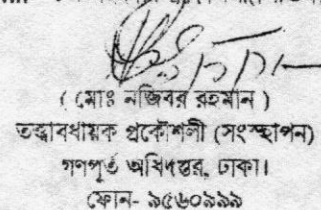 ( মোঃ নজিবর রহমান )
তত্ত্বাবধায়ক প্রকৌশলী (সংস্হাপন)
গণপূর্ত অধিদপ্তর, ঢাকা।
ফোন- ৯৫৬০৯৯৯